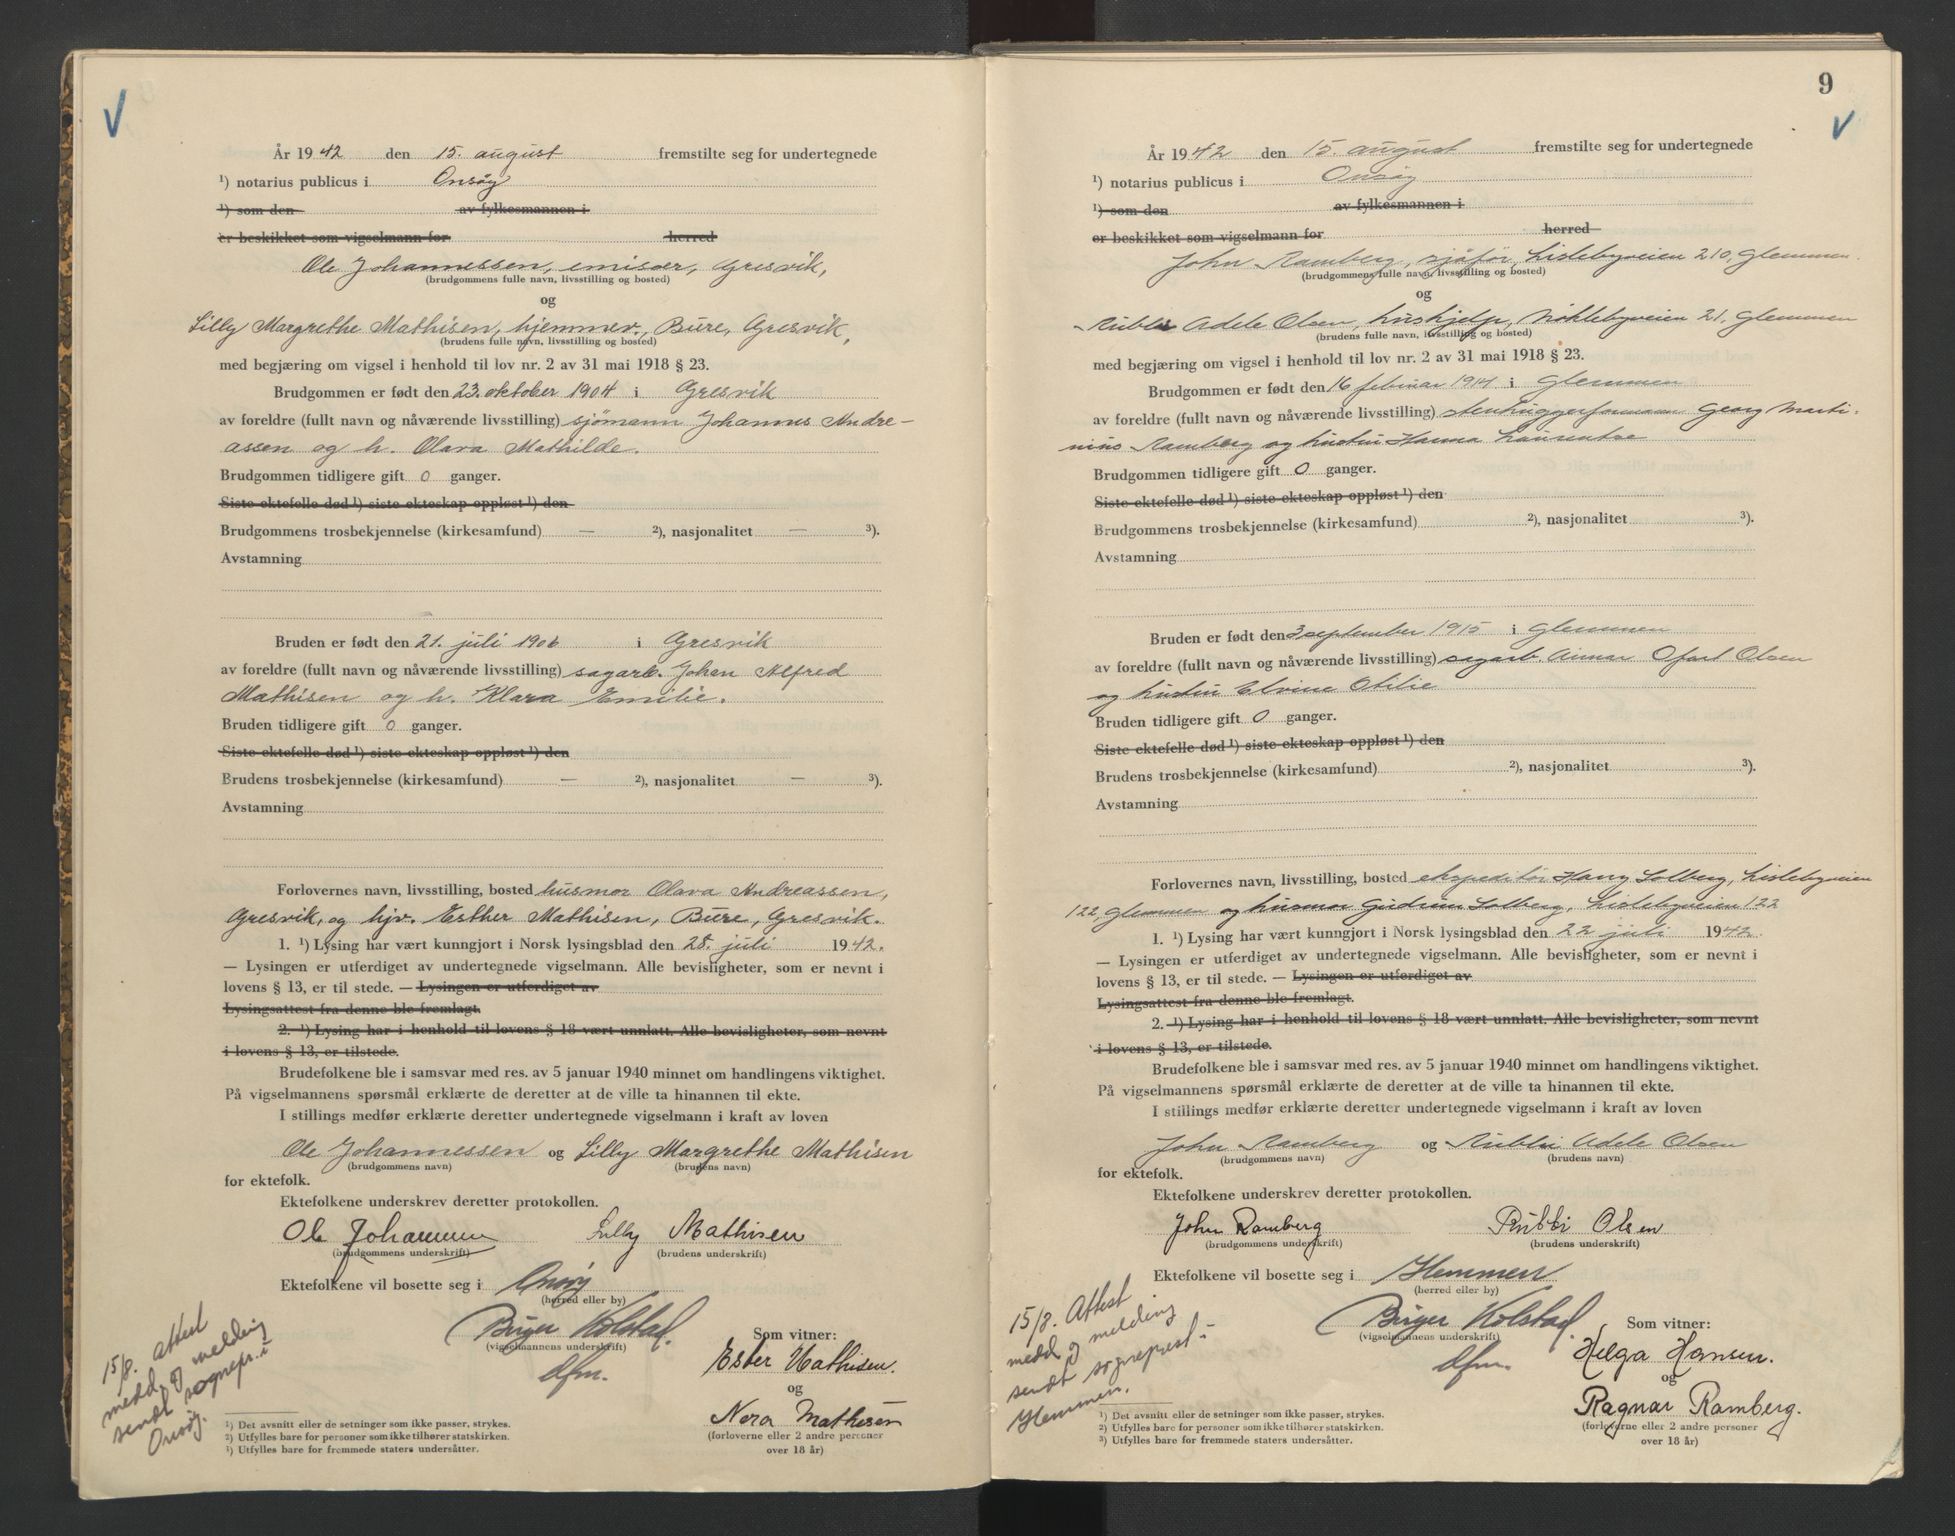 År 1942 den 15. august fremstilte seg for undertegnede
¹) notarius publicus i Onsøy
¹) som den av fylkesmannen i
er beskikket som vigselmann for herred
Ole Johannessen, emisær, Gresvik,
(brudgommens fulle navn, livsstilling og bosted)
og
Lilly Margrethe Mathisen, hjemmev., Bure, Gresvik,
(brudens fulle navn, livsstilling og bosted)
med begjæring om vigsel i henhold til lov nr. 2 av 31 mai 1918 § 23.
Brudgommen er født den 23. oktober 1904 i Gresvik
av foreldre (fullt navn og nåværende livsstilling) sjømann Johannes Andre-
assen og h. Olava Mathilde.
Brudgommen tidligere gift 0 ganger.
Siste ektefelle død ¹) siste ekteskap oppløst ¹) den
Brudgommens trosbekjennelse (kirkesamfund) — ²), nasjonalitet — ³).
Avstamning
Bruden er født den 21. juli 1906 i Gresvik
av foreldre (fullt navn og nåværende livsstilling) sagarb. Johan Alfred
Mathisen og h. Klara Emilie.
Bruden tidligere gift 0 ganger.
Siste ektefelle død ¹) siste ekteskap oppløst ¹) den
Brudens trosbekjennelse (kirkesamfund) — ²), nasjonalitet — ³).
Avstamning
Forlovernes navn, livsstilling, bosted husmor Olava Andreassen,
Gresvik, og hjv. Esther Mathisen, Bure, Gresvik.
1. ¹) Lysing har vært kunngjort i Norsk lysingsblad den 28. juli 1942.
— Lysingen er utferdiget av undertegnede vigselmann. Alle bevisligheter, som er nevnt i
lovens § 13, er til stede. — Lysingen er utferdiget av
Lysingsattest fra denne ble fremlagt.
2. ¹) Lysing har i henhold til lovens § 18 vært unnlatt. Alle bevisligheter, som nevnt
i lovens § 13, er tilstede.
Brudefolkene ble i samsvar med res. av 5 januar 1940 minnet om handlingens viktighet.
På vigselmannens spørsmål erklærte de deretter at de ville ta hinannen til ekte.
I stillings medfør erklærte deretter undertegnede vigselmann i kraft av loven
Ole Johannessen og Lilly Margrethe Mathisen
(brudgommens navn) (brudens navn)
for ektefolk.
Ektefolkene underskrev deretter protokollen.
Ole Johannessen Lilly Mathisen
(brudgommens underskrift) (brudens underskrift)
Ektefolkene vil bosette seg i Onsøy
(herred eller by)
Birger Kolstad. Som vitner:
(vigselmannens underskrift)
dfm. Ester Mathisen.
og
Nora Mathisen
(forloverne eller 2 andre personer
over 18 år)
15/8. attest
medd. og melding
sendt sognepr. i
Onsøy.
¹) Det avsnitt eller de setninger som ikke passer, strykes.
²) Utfylles bare for personer som ikke tilhører statskirken.
³) Utfylles bare for fremmede staters undersåtter.
9
År 1942 den 15. august fremstilte seg for undertegnede
¹) notarius publicus i Onsøy
¹) som den av fylkesmannen i
er beskikket som vigselmann for herred
John Ramberg, sjåfør, Lislebyveien 210, Glemmen.
(brudgommens fulle navn, livsstilling og bosted)
og
Rubbi Adele Olsen, hushjelp, Nøklebyveien 21, Glemmen
(brudens fulle navn, livsstilling og bosted)
med begjæring om vigsel i henhold til lov nr. 2 av 31 mai 1918 § 23.
Brudgommen er født den 16 februar 1914 i Glemmen
av foreldre (fullt navn og nåværende livsstilling) stenhuggerformann Georg Marti-
nius Ramberg og hustru Hanna Laurentse
Brudgommen tidligere gift 0 ganger.
Siste ektefelle død ¹) siste ekteskap oppløst ¹) den
Brudgommens trosbekjennelse (kirkesamfund) ²), nasjonalitet ³).
Avstamning
Bruden er født den 3 september 1915 i Glemmen
av foreldre (fullt navn og nåværende livsstilling) sagarb. Olsen
og hustru Elvine Otilie
Bruden tidligere gift 0 ganger.
Siste ektefelle død ¹) siste ekteskap oppløst ¹) den
Brudens trosbekjennelse (kirkesamfund) ²), nasjonalitet ³).
Avstamning
Forlovernes navn, livsstilling, bosted ekspeditør Harry Solberg, Lislebyveien
122, Glemmen og husmor Gudrun Solberg, Lislebyveien 122
1. ¹) Lysing har vært kunngjort i Norsk lysingsblad den 22 juli 1942.
— Lysingen er utferdiget av undertegnede vigselmann. Alle bevisligheter, som er nevnt i
lovens § 13, er til stede. — Lysingen er utferdiget av
Lysingsattest fra denne ble fremlagt.
2. ¹) Lysing har i henhold til lovens § 18 vært unnlatt. Alle bevisligheter, som nevnt
i lovens § 13, er tilstede.
Brudefolkene ble i samsvar med res. av 5 januar 1940 minnet om handlingens viktighet.
På vigselmannens spørsmål erklærte de deretter at de ville ta hinannen til ekte.
I stillings medfør erklærte deretter undertegnede vigselmann i kraft av loven
John Ramberg og Rubbi Adele Olsen
(brudgommens navn) (brudens navn)
for ektefolk.
Ektefolkene underskrev deretter protokollen.
John Ramberg Rubbi Olsen
(brudgommens underskrift) (brudens underskrift)
Ektefolkene vil bosette seg i Glemmen
(herred eller by)
Birger Kolstad. Som vitner:
(vigselmannens underskrift)
dfm. Helga Hansen.
og
Ragnar Ramberg.
(forloverne eller 2 andre personer
over 18 år)
15/8. Attest
medd. og melding
sendt sogneprest i
Glemmen.
¹) Det avsnitt eller de setninger som ikke passer, strykes.
²) Utfylles bare for personer som ikke tilhører statskirken.
³) Utfylles bare for fremmede staters undersåtter.